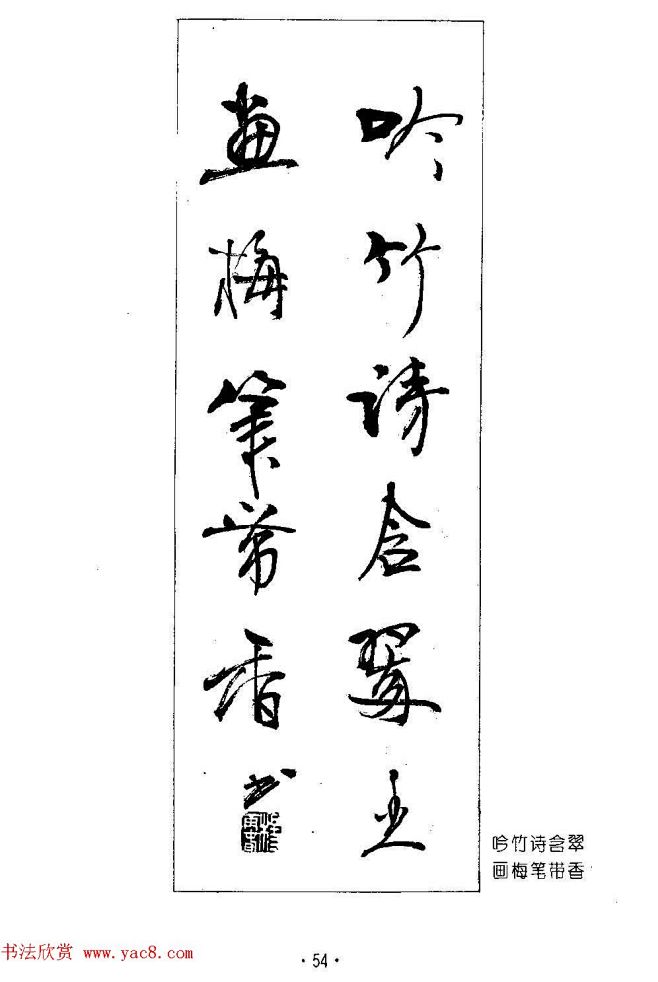 吟竹诗含翠
画梅笔带香
书
吟竹诗含翠
画梅笔带香
书法欣赏 www.yac8.com
·54·